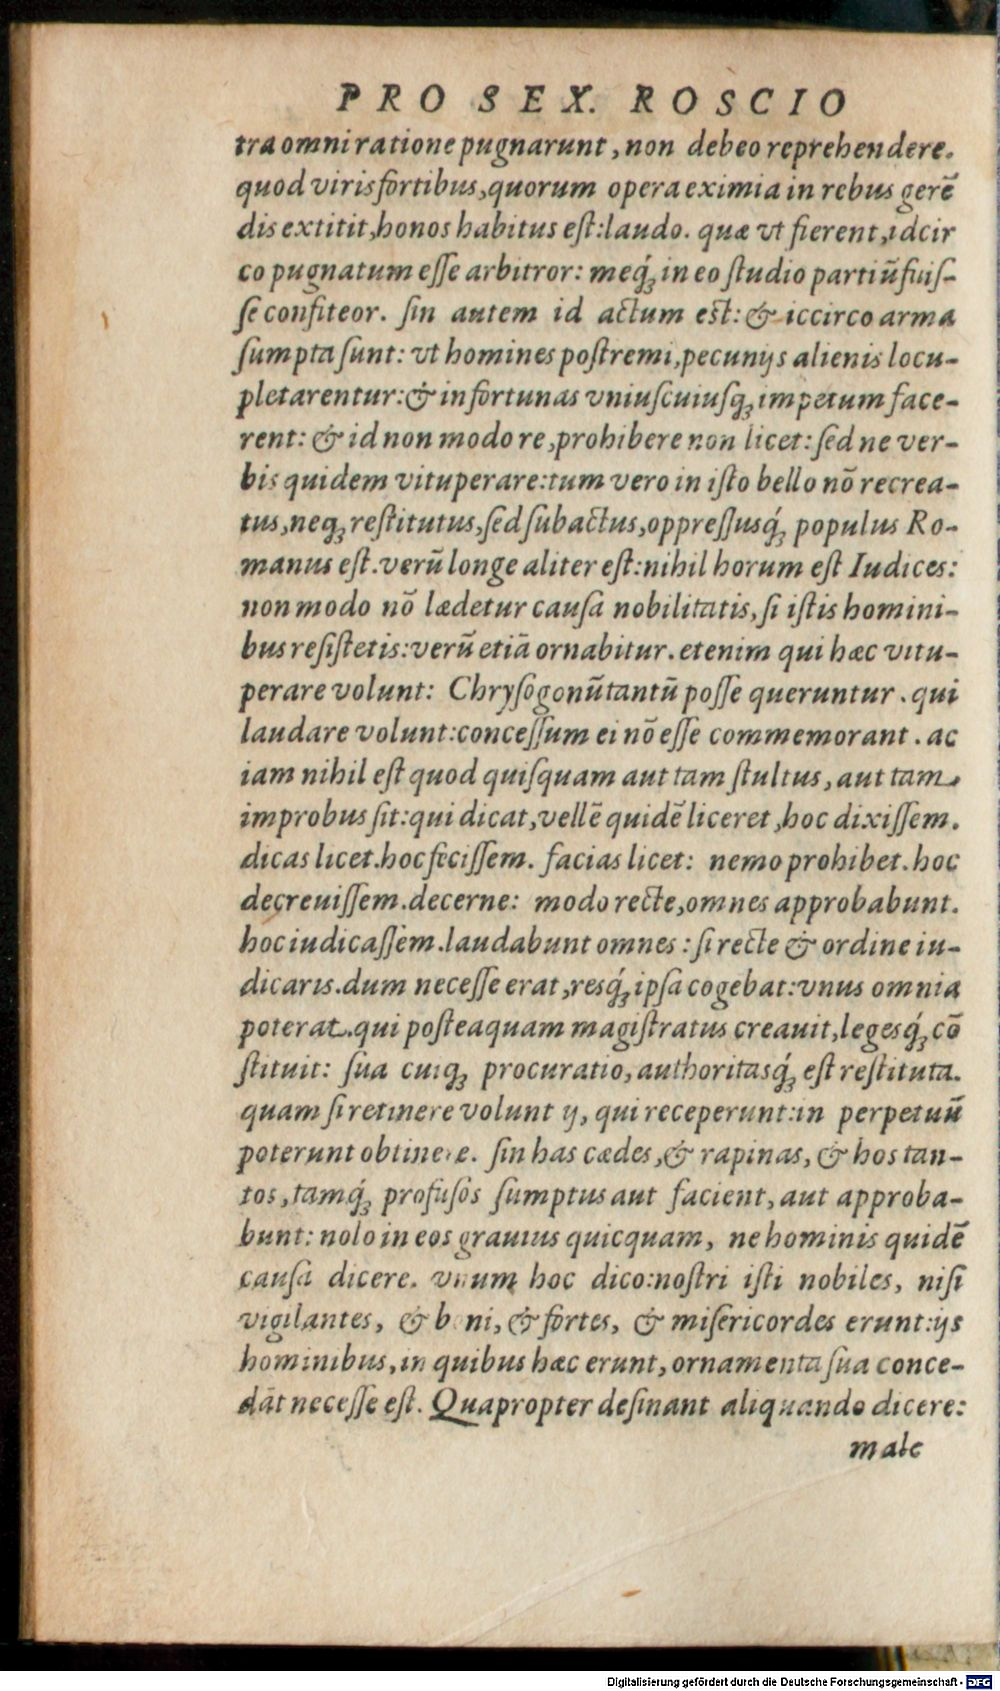 PRO SEX. ROSCIO
tra omni ratione pugnarunt, non debeo reprehendere.
quod viris fortibus, quorum opera eximia in rebus gerē
dis extitit, honos habitus eſt: laudo. quæ vt fierent, idcir
co pugnatum eſſe arbitror: meq́ꝫ in eo ſtudio partiū fuiſ-
ſe confiteor. ſin autem id actum eſt: & iccirco arma
ſumpta ſunt: vt homines poſtremi, pecunijs alienis locu-
pletarentur: & in fortunas vniuſcuiuſqꝫ impetum face-
rent: & id non modo re, prohibere non licet: ſed ne ver-
bis quidem vituperare: tum vero in iſto bello nō recrea-
tus, neqꝫ reſtitutus, ſed ſubactus, oppreſſusq́ꝫ populus Ro-
manus eſt. verū longe aliter eſt: nihil horum eſt Iudices:
non modo nō lædetur cauſa nobilitatis, ſi iſtis homini-
bus reſiſtetis: verū etiā ornabitur. etenim qui hæc vitu-
perare volunt: Chryſogonū tantū poſſe queruntur. qui
laudare volunt: conceſſum ei nō eſſe commemorant. ac
iam nihil eſt quod quiſquam aut tam ſtultus, aut tam
improbus ſit: qui dicat, vellē quidē liceret, hoc dixiſſem.
dicas licet. hoc feciſſem. facias licet: nemo prohibet. hoc
decreuiſſem. decerne: modo recte, omnes approbabunt.
hoc iudicaſſem. laudabunt omnes: ſi recte & ordine iu-
dicaris. dum neceſſe erat, resq́ꝫ ipſa cogebat: vnus omnia
poterat. qui poſteaquam magiſtratus creauit, legesq́ꝫ cō
ſtituit: ſua cuiqꝫ procuratio, authoritasq́ꝫ eſt reſtituta.
quam ſi retinere volunt ij, qui receperunt: in perpetuū
poterunt obtinere. ſin has cædes, & rapinas, & hos tan-
tos, tamq́ꝫ profuſos ſumptus aut facient, aut approba-
bunt: nolo in eos grauius quicquam, ne hominis quidē
cauſa dicere. vnum hoc dico: noſtri iſti nobiles, niſi
vigilantes, & boni, & fortes, & miſericordes erunt: ijs
hominibus, in quibus hæc erunt, ornamenta ſua conce-
dāt neceſſe eſt. Quapropter deſinant aliquando dicere:
male
Digitalisierung gefördert durch die Deutsche Forschungsgemeinschaft - DFG